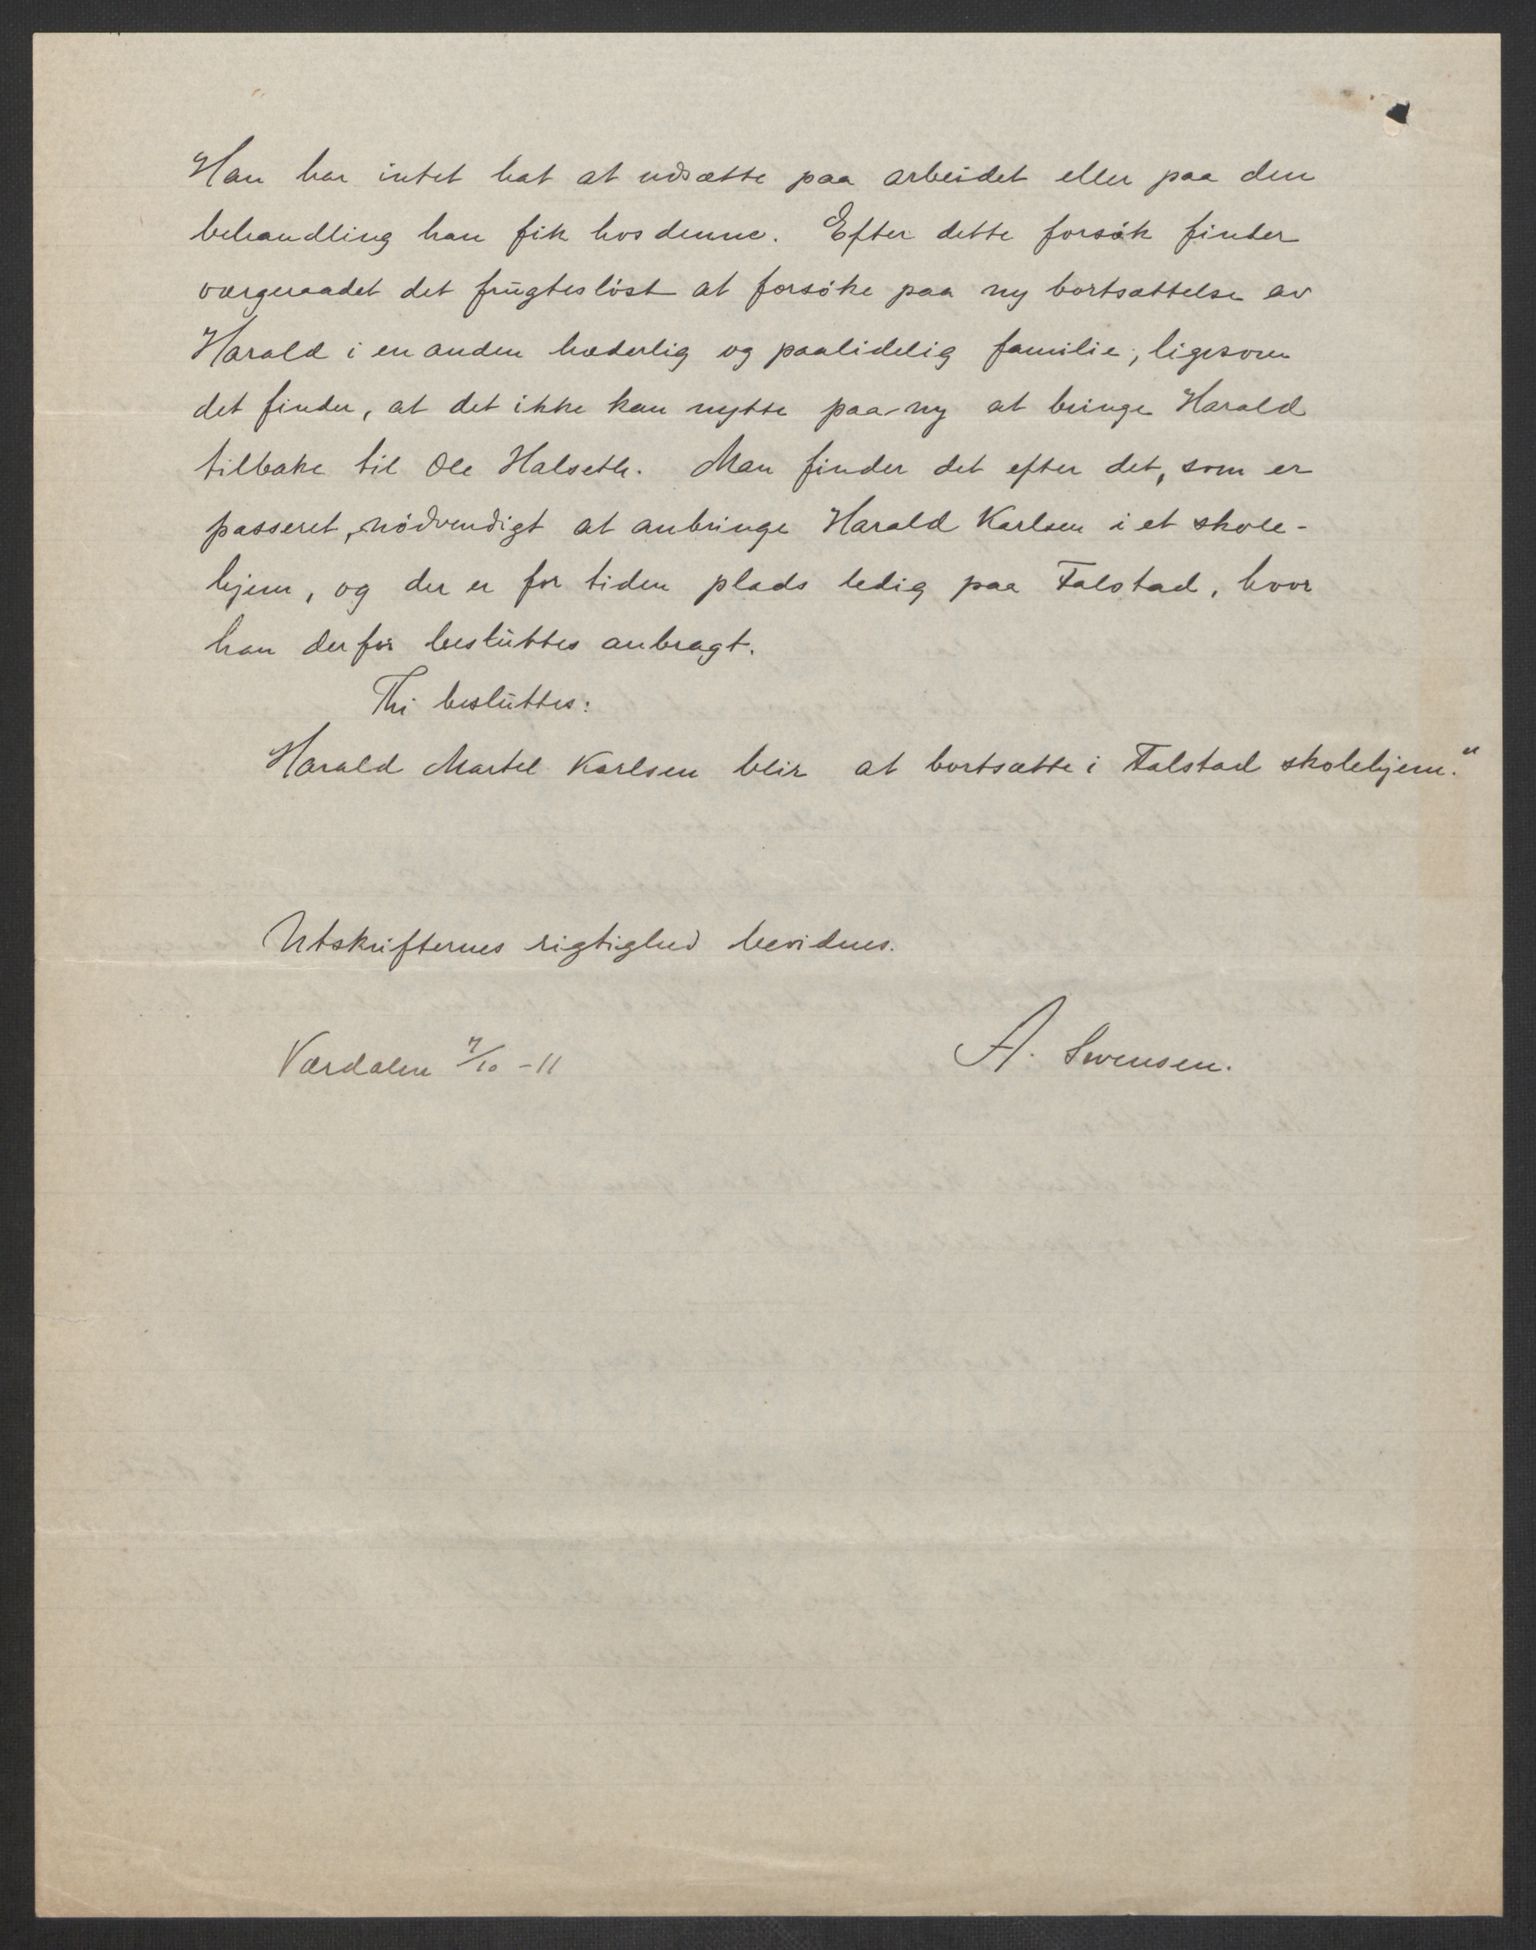 Han har intet hat at udsætte paa arbeidet eller paa den
behandling han fik hos denne. Efter dette forsøk finder
værgeraadet det frugtesløst at forsøke paa ny bortsættelse av
Harald i en anden hæderlig og paalidelig familie, ligesom
det finder, at det ikke kan nytte paa ny at bringe Harald
tilbake til Ole Halseth. Man finder det efter det, som er
passeret, nødvendigt at anbringe Harald Karlsen i et skole-
hjem, og der er for tiden plads ledig paa Falstad, hvor
han derfor besluttes anbragt.
Thi besluttes:
Harald Martel Karlsen blir at bortsætte i Falstad skolehjem."
Utskrifternes rigtighed bevidnes.
Værdalen 7/10 -11
A. Svensen.